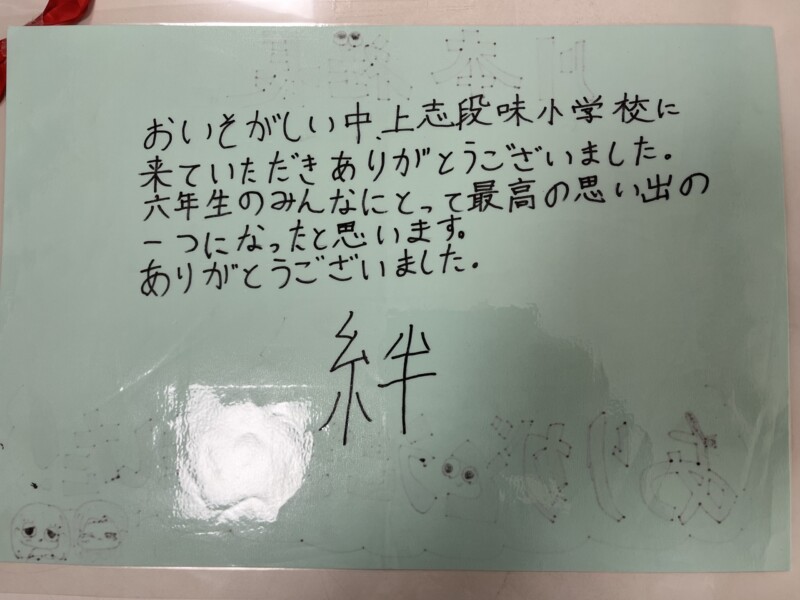 おいそがしい中、上志段味小学校に
来ていただきありがとうございました。
六年生のみんなにとって最高の思い出の
一つになったと思います。
ありがとうございました。
絆